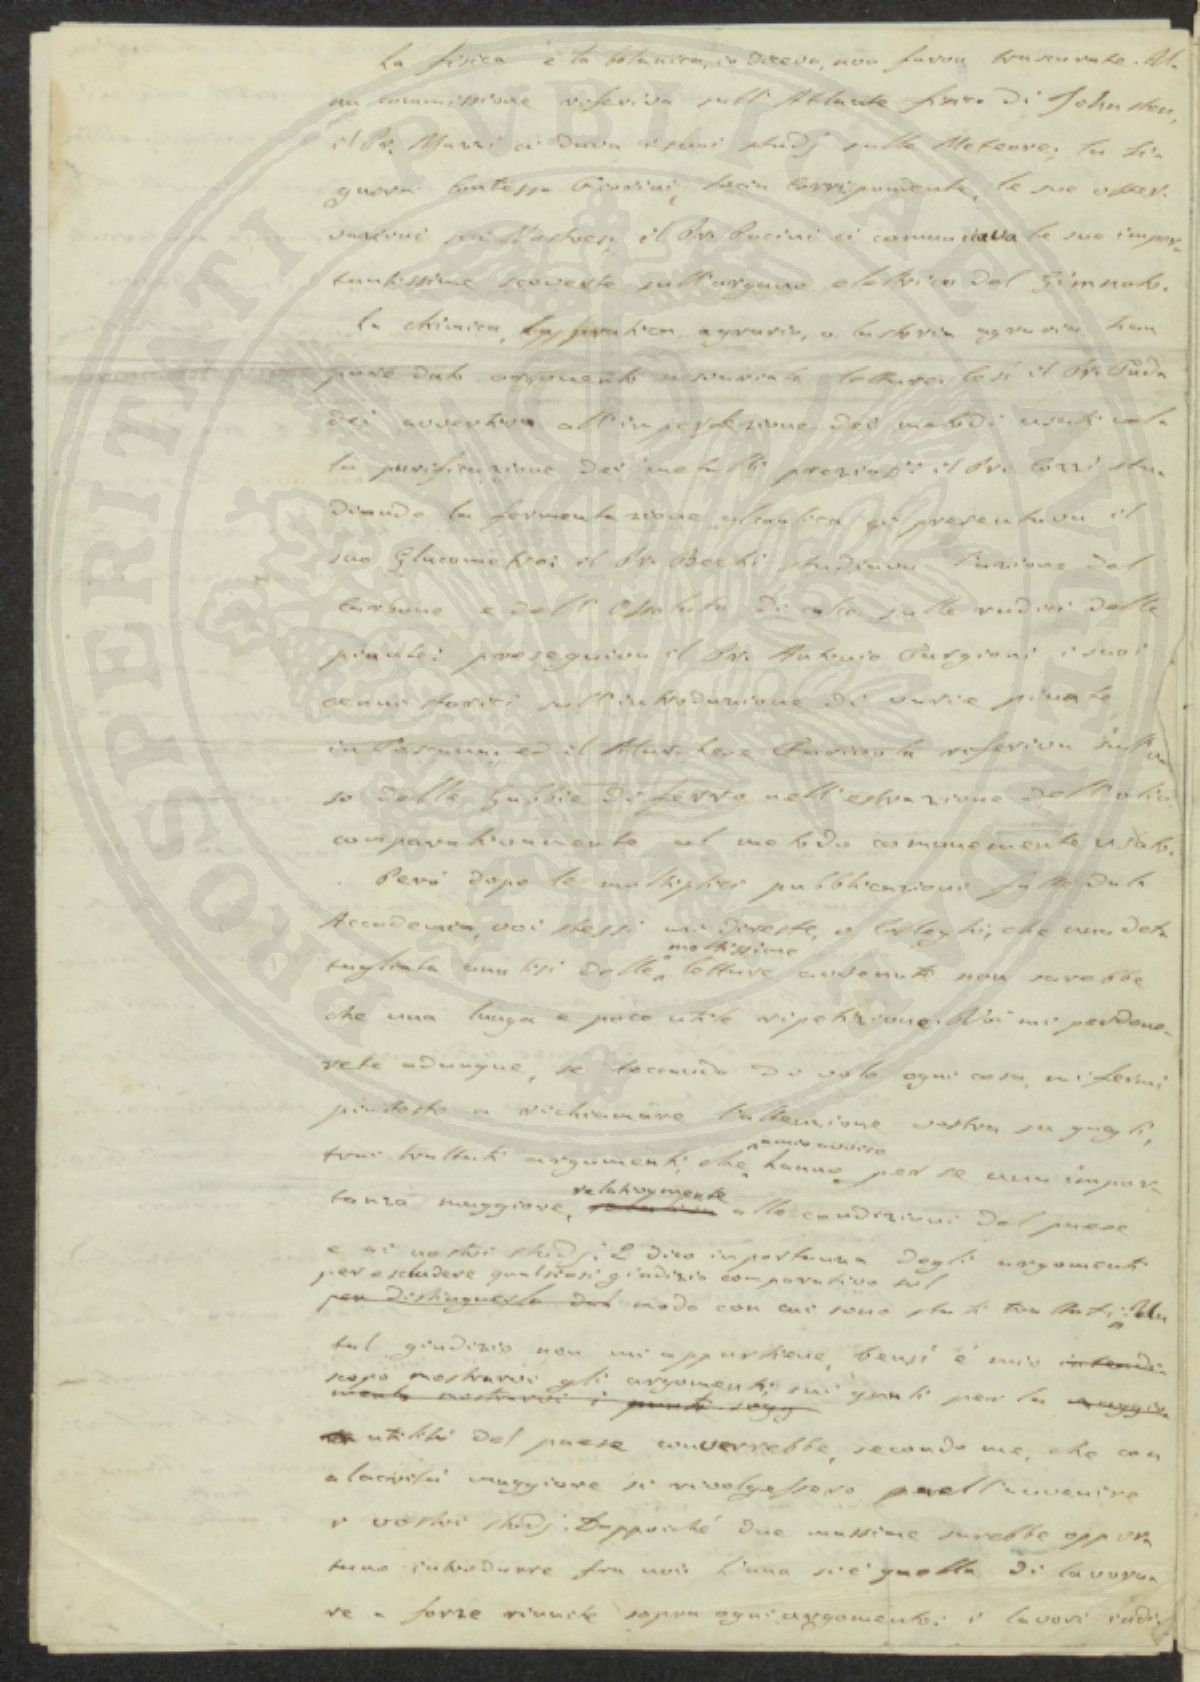 La fisica e la botanica, io diceva, non furon trascurate. U-
na commissione riferiva sull'Atlante fisico di Johnston,
il Pr. Mazzi ci dava i suoi studj sulle Meteore; la Si-
gnora Contessa Fiorini, socia corrispondente, le sue osser-
vazioni sui Nostoc; il Pr. Pacini ci comunicava le sue impor-
tantissime scoverte sull'organo elettrico del Gimnoto.
La chimica, la pratica agraria, e la storia agraria han
però dato argomento a svariate letture. Così il Pr. Tad-
dei avvertiva all'imperfezione dei metodi usati nel-
la purificazione dei metalli preziosi: il Pr. Cozzi stu-
diando la fermentazione alcoolica ci presentava il
suo Glucometro: il Pr. Bechi studiava l'azione del
Carbone e dell'Ossalato di calce sulle radici delle
piante: proseguiva il Pr. Antonio Targioni i suoi
cenni storici sull'introduzione di varie piante
in Toscana, ed il Marchese Farinola riferiva sull'u-
so delle Gabbie di ferro nell'estrazione dell'olio
comparativamente al metodo comunemente usato.
Però dopo le molteplici pubblicazioni fatte dalla
Accademia, voi stessi mi direste, o Colleghi, che una det-
tagliata analisi delle moltissime letture avvenute non sarebbe
che una lunga e poco utile ripetizione. Voi mi perdone-
rete adunque, se toccando di volo ogni cosa, mi fermi
piuttosto a richiamare l'attenzione vostra su quegli,
trai trattati argomenti, che, a mio avviso, hanno per se una impor-
tanza maggiore, relativamente alle condizioni del paese
e ai nostri studj. E dico importanza degli argomenti
per escludere qualsiasi giudizio comparativo sul
per distinguerla dal modo con cui sono stati trattati: Un
tal giudizio non mi appartiene, bensì è mio intendi-
scopo mostrarvi gli argomenti, sui quali per la maggior
mento mostrarvi i punti sogg
utilità del paese converrebbe, secondo me, che con
alacrità maggiore si rivolgessero nell'avvenire
i vostri studj. Dappoichè due massime sarebbe oppor-
tuno introdurre fra noi: l'una si è quella di lavora-
re a forze riunite sopra ogni argomento: i lavori indi-